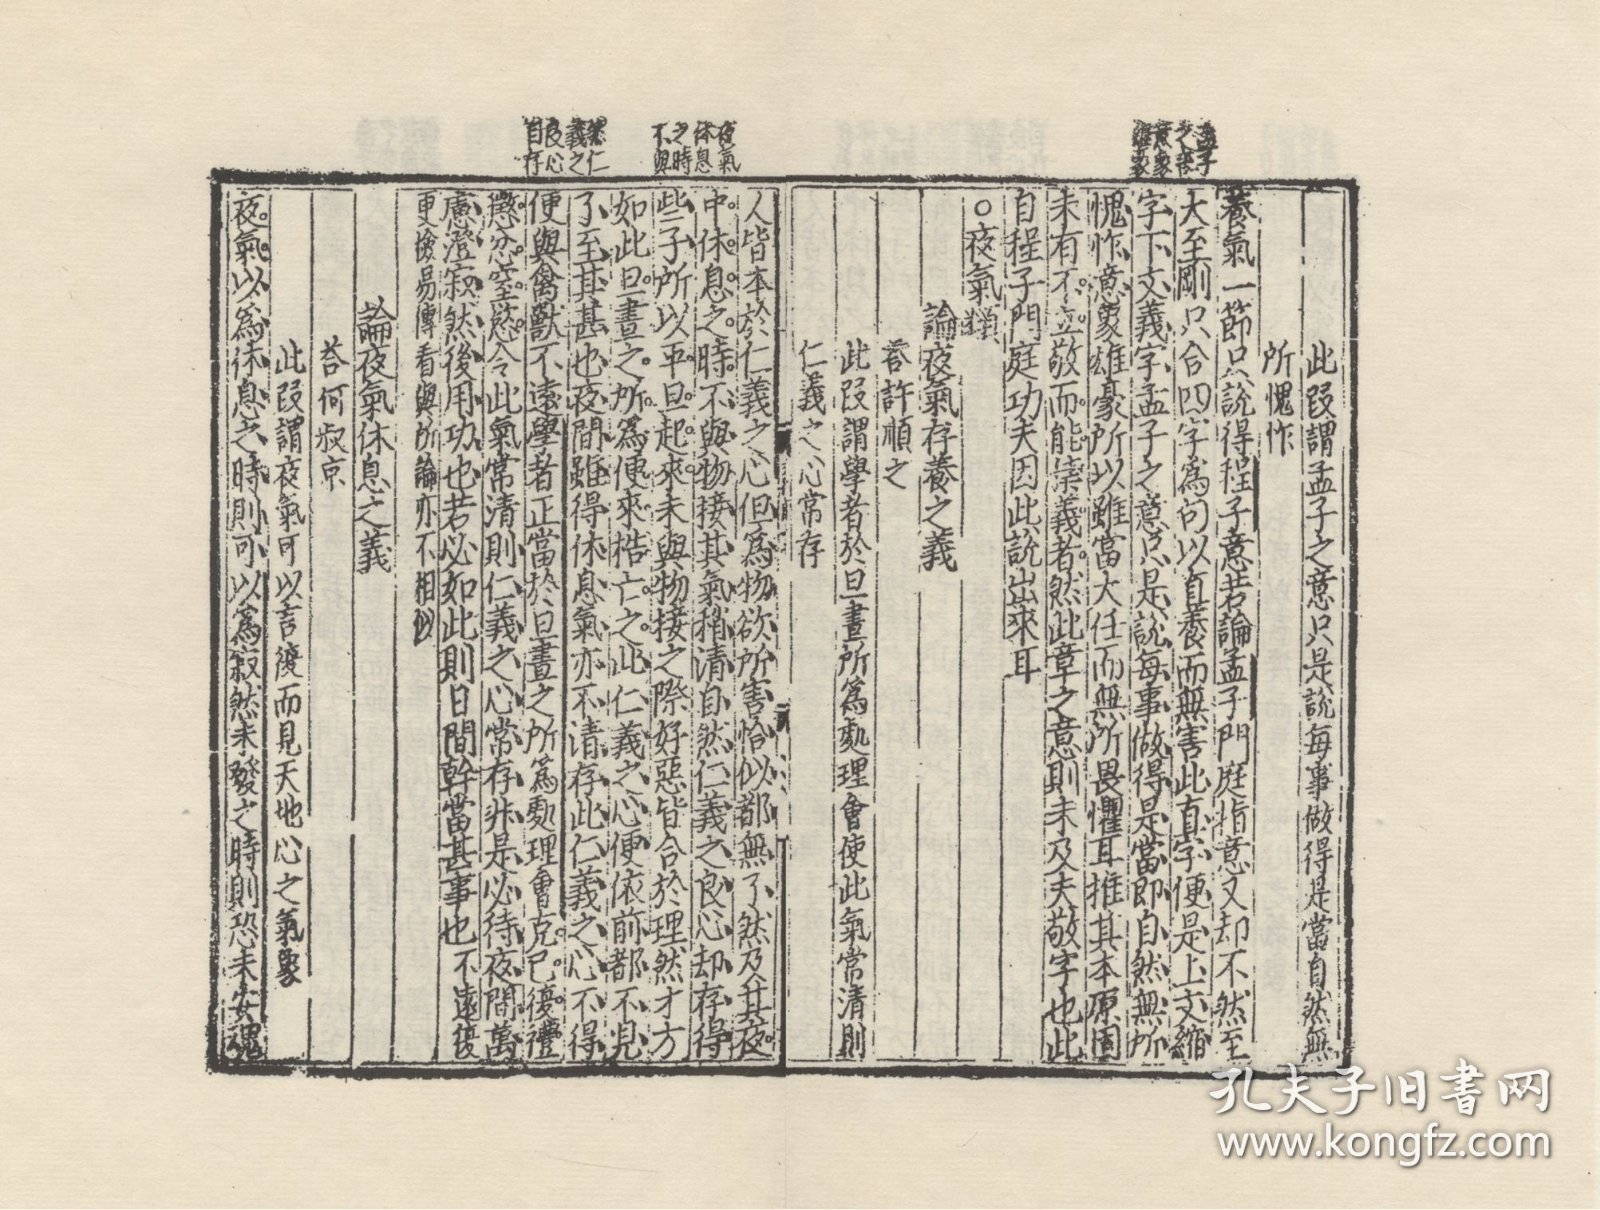 孟子
之意
意象
雄豪
此段謂孟子之意只是說每事做得是當自然無
所愧怍
養氣一節只說得程子意若論孟子門庭指意又却不然至
大至剛只合四字爲句以直養而無害此直字便是上文縮
字下文義字孟子之意只是說每事做得是當即自然無所
愧怍意象雄豪所以雖當大任而無所畏懼耳推其本原固
未有不立敬而能集義者然此章之意則未及夫敬字也此
自程子門庭功夫因此說出來耳
○夜氣類
論夜氣存養之義
荅許順之
此段謂學者於旦晝所爲處理會使此氣常清則
仁義之心常存
夜氣
休息
之時
不與
然仁
義之
良心
自存
人皆本於仁義之心但爲物欲所害恰似都無了然及其夜
中休息之時不與物接其氣稍清自然仁義之良心却存得
些子所以平旦起來未與物接之際好惡皆合於理然才方
如此旦晝之所爲便來梏亡之此仁義之心便依前都不見
了至其甚也夜間雖得休息氣亦不清存此仁義之心不得
便與禽獸不遠學者正當於旦晝之所爲處理會克己復禮
懲忿窒慾令此氣常清則仁義之心常存非是必待夜間萬
慮澄寂然後用功也若必如此則日間幹當甚事也不遠復
更撿易傳看與所論亦不相似
論夜氣休息之義
荅何叔京
此段謂夜氣可以言復而見天地心之氣象
夜氣以爲休息之時則可以爲寂然未發之時則恐未安魂
孔夫子旧书网
www.kongfz.com